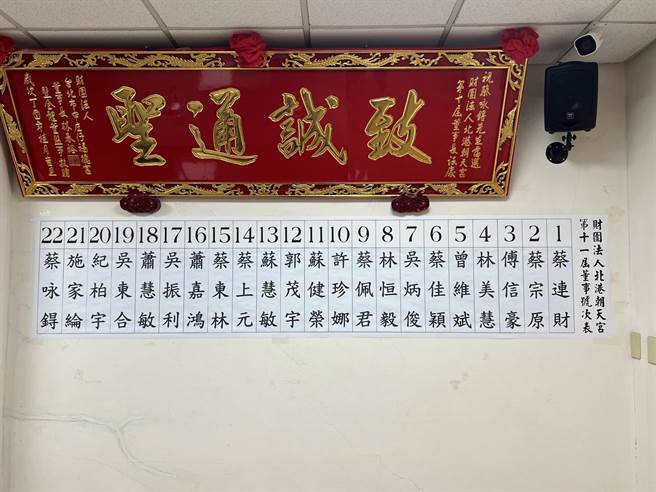 祝蔡咏鍀先生當選
財團法人北港朝天宮
第十屆董事長誌慶
致誠通聖
財團法人
台北市中庄仔福德宮
董事長林
暨全體董監事敬贈
歲次丁酉年桂月吉旦
財團法人北港朝天宮
第十一屆董事號次表
1 蔡連財
2 蔡宗原
3 傅信豪
4 林美慧
5 曾維斌
6 蔡佳穎
7 吳炳俊
8 林恒毅
9 蔡佩君
10 許珍娜
11 蘇健榮
12 郭茂宇
13 蘇慧敏
14 蔡上元
15 蔡東林
16 蕭嘉鴻
17 吳振利
18 蕭慧敏
19 吳東合
20 紀柏宇
21 施家綸
22 蔡咏鍀